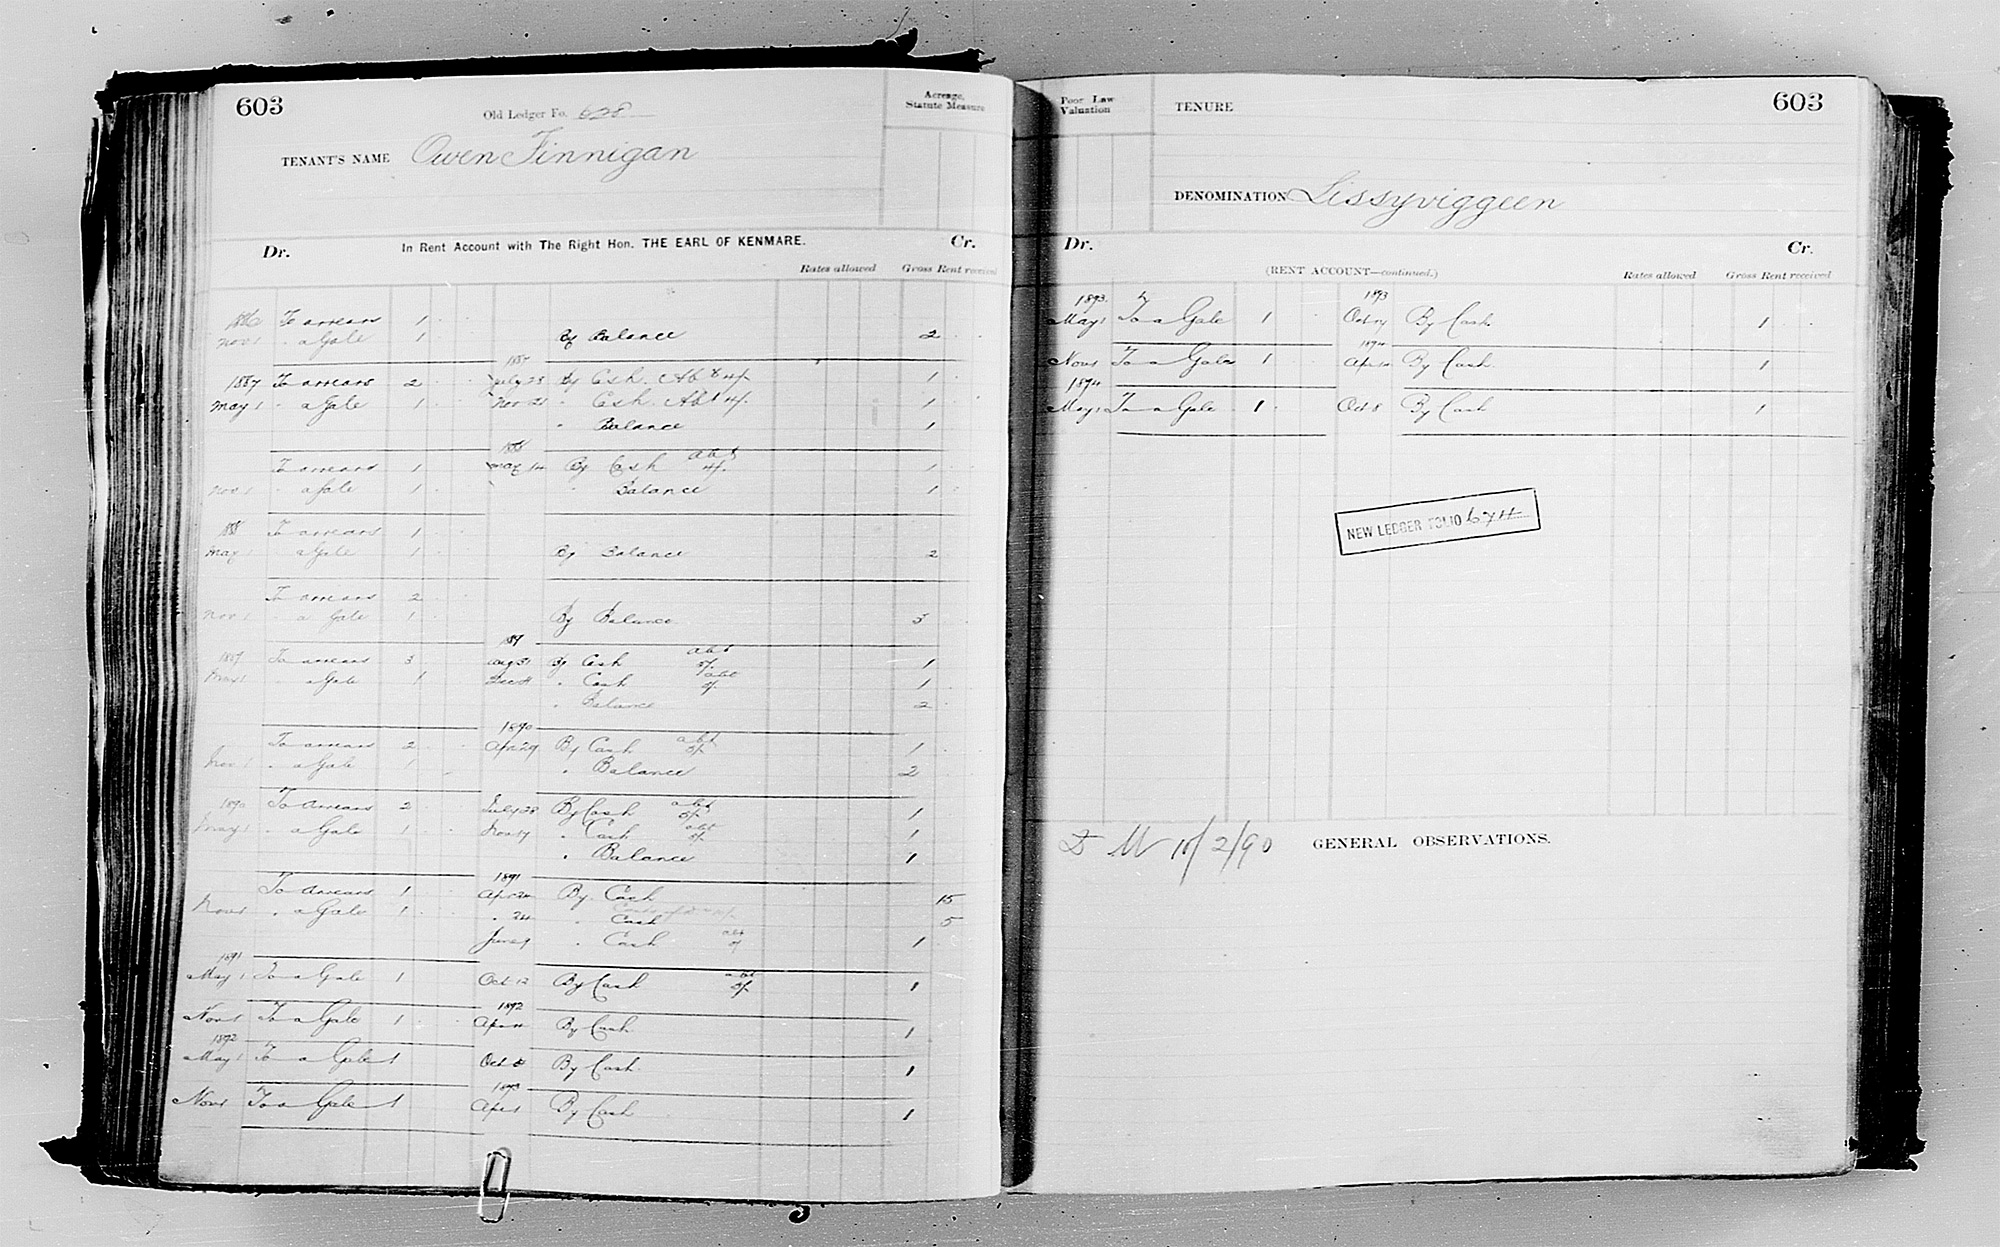 603
Old Ledger Fo. 628
Acreage, Statute Measure
TENANT'S NAME Owen Finnigan
Dr. In Rent Account with The Right Hon. THE EARL OF KENMARE. Cr.
Rates allowed Gross Rent received
1886 To arrears 1
Nov 1 " a Gale 1 By Balance 2
1887
1887 To arrears 2 July 28 By Cash Abt 4/- 1
May 1 " a Gale 1 Nov 21 " Cash Abt 4/- 1
" Balance 1
1888
To arrears 1 May 14 By Cash abt 4/- 1
Nov 1 " a Gale 1 " Balance 1
1888 To arrears 1
May 1 a Gale 1 By Balance 2
To arrears 2
Nov 1 " a Gale 1 By Balance 3
To arrears 3 Aug 31 By Cash abt 5/- 1
May 1 " a Gale 1 Dec " Cash abt 5/- 1
" Balance 2
1890
To arrears 2 Apr 29 By Cash abt 5/- 1
Nov 1 " a Gale 1 " Balance 2
1890 To arrears 2 July 28 By Cash abt 5/- 1
May 1 " a Gale 1 Nov 17 " Cash abt 5/- 1
" Balance 1
1891
To arrears 1 Apr 20 By Cash 15
Nov 1 " a Gale 1 " 24 " Cash 5
June 9 " Cash abt 1
1891
May 1 To a Gale 1 Oct 12 By Cash abt 5/- 1
1892
Nov 1 To a Gale 1 Apr 11 By Cash 1
1892
May 1 To a Gale 1 Oct 8 By Cash 1
1893
Nov 1 To a Gale 1 Apr 1 By Cash 1
Poor Law Valuation
TENURE
603
DENOMINATION Lissyviggeen
Dr. Cr.
(RENT ACCOUNT—continued.) Rates allowed Gross Rent received
1893 1893
May 1 To a Gale 1 Oct 14 By Cash 1
1894
Nov 1 To a Gale 1 Apr By Cash 1
1894
May 1 To a Gale 1 Oct 8 By Cash 1
NEW LEDGER FOLIO 674
10/2/90 GENERAL OBSERVATIONS.